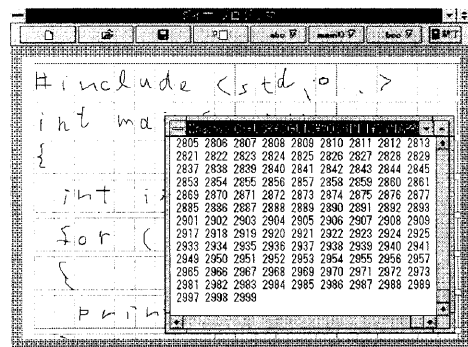 abc
#include <std,o .>
int ma
{
int i
for (
{
prin
2805 2806 2807 2808 2809 2810 2811 2812 2813
2821 2822 2823 2824 2825 2826 2827 2828 2829
2837 2838 2839 2840 2841 2842 2843 2844 2845
2853 2854 2855 2856 2857 2858 2859 2860 2861
2869 2870 2871 2872 2873 2874 2875 2876 2877
2885 2886 2887 2888 2889 2890 2891 2892 2893
2901 2902 2903 2904 2905 2906 2907 2908 2909
2917 2918 2919 2920 2921 2922 2923 2924 2925
2933 2934 2935 2936 2937 2938 2939 2940 2941
2949 2950 2951 2952 2953 2954 2955 2956 2957
2965 2966 2967 2968 2969 2970 2971 2972 2973
2981 2982 2983 2984 2985 2986 2987 2988 2989
2997 2998 2999